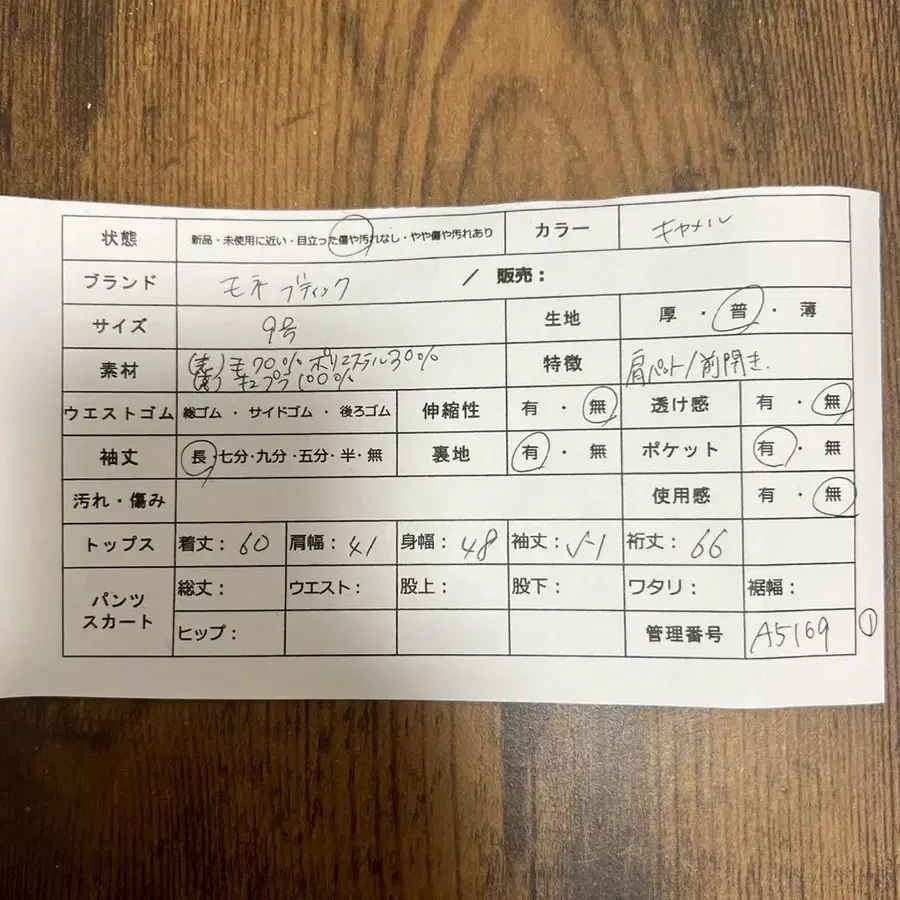 状態 新品・未使用に近い・目立った傷や汚れなし・やや傷や汚れあり カラー キャメル
ブランド モネ ブティック / 販売：
サイズ 9号 生地 厚・普・薄
素材 (表)毛70% ポリエステル30% 特徴 肩パット/前開き.
(裏)キュプラ100%
ウエストゴム 総ゴム・サイドゴム・後ろゴム 伸縮性 有・無 透け感 有・無
袖丈 長・七分・九分・五分・半・無 裏地 有・無 ポケット 有・無
汚れ・傷み 使用感 有・無
トップス 着丈：60 肩幅：41 身幅：48 袖丈：51 裄丈：66
パンツ 総丈： ウエスト： 股上： 股下： ワタリ： 裾幅：
スカート ヒップ： 管理番号 A5169 ①